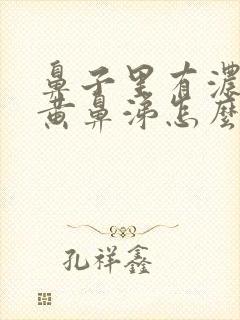 鼻子里有濃
黄鼻涕怎麼
孔祥鑫